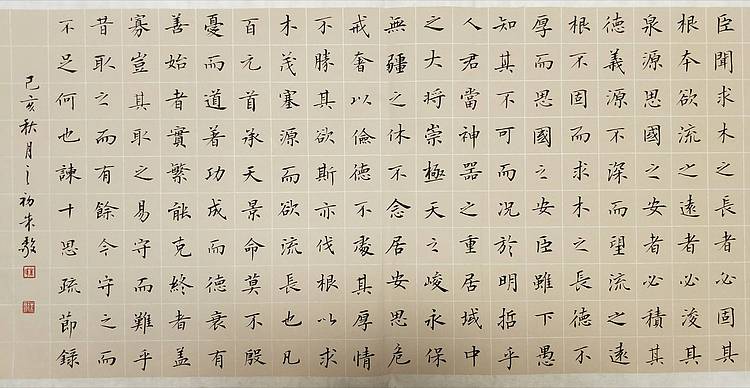 臣聞求木之長者必固其
根本欲流之遠者必浚其
泉源思國之安者必積其
德義源不深而望流之遠
根不固而求木之長德不
厚而思國之安臣雖下愚
知其不可而況於明哲乎
人君當神器之重居域中
之大将崇極天之峻永保
無疆之休不念居安思危
戒奢以儉德不處其厚情
不勝其欲斯亦伐根以求
木茂塞源而欲流長也凡
百元首承天景命莫不殷
憂而道著功成而德衰有
善始者實繁能克終者蓋
寡豈其取之易守而難乎
昔取之而有餘今守之而
不足何也諫十思疏節録
己亥秋月之初朱